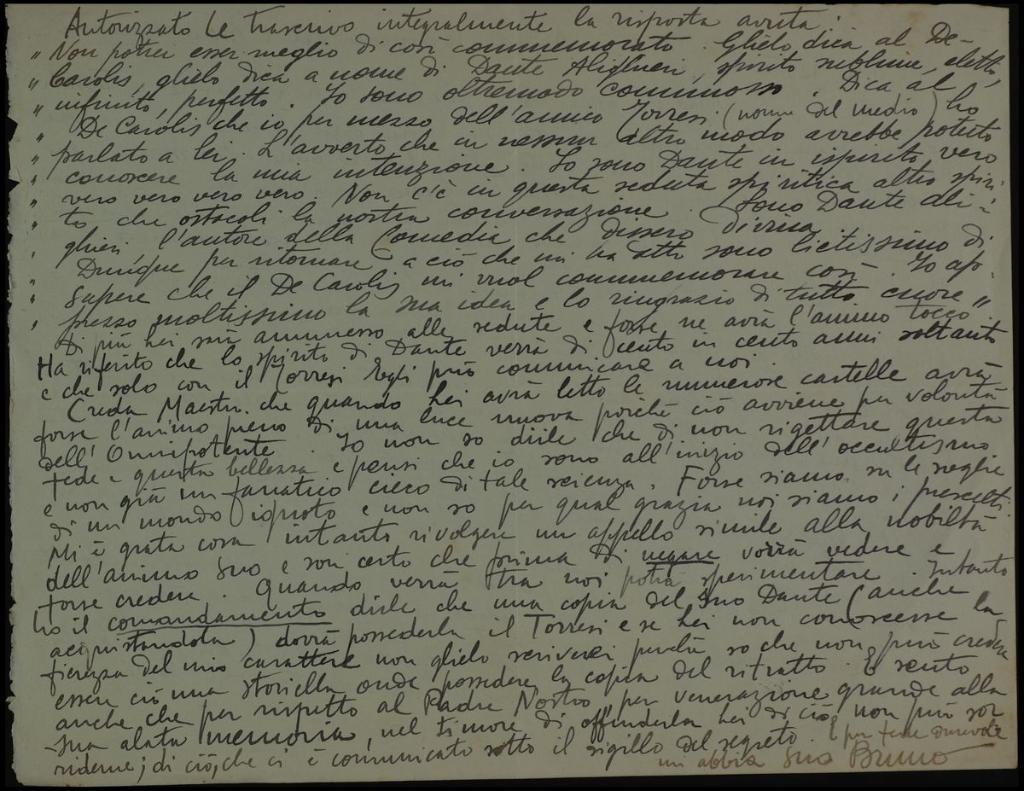 Autorizzato Le trascrivo integralmente la risposta avuta:
" Non potrei esser meglio di così commemorato. Glielo dica al De-
" Carolis, glielo dica a nome di Dante Alighieri, spirito sublime, eletto,
" infinito, perfetto. Io sono oltremodo commosso. Dica al
" De Carolis che io per mezzo dell'amico Torresi (nome del medio) ho
" parlato a lei. L'avverto che in nessun altro modo avrebbe potuto
" conoscere la mia intenzione. Io sono Dante in ispirito vero
" vero vero vero vero. Non c'è in questa seduta spiritica altro spiri-
" to che ostacoli la nostra conversazione. Sono Dante Ali-
" ghieri l'autore della Comedia che dissero divina.
" Dunque per ritornare a ciò che mi ha detto sono lietissimo di
" sapere che il De Carolis mi vuol commemorare così. Io ap-
" prezzo moltissimo la sua idea e lo ringrazio di tutto cuore "
Di più Lei sarà ammesso alle sedute e forse ne avrà l'animo tocco.
Ha riferito che lo spirito di Dante verrà di cento in cento anni soltanto
e che solo con il Torresi Egli può comunicare a noi.
Creda Maestro che quando Lei avrà letto le numerose cartelle avrà
forse l'animo pieno di una luce nuova poiché ciò avviene per volontà
dell'Omnipotente. Io non so dirle che di non rigettare questa
fede e questa bellezza e pensi che io sono all'inizio dell'occultismo
e non già un fanatico cieco di tale scienza. Forse siamo su le soglie
di un mondo ignoto e non so per qual grazia noi siamo i prescelti.
Mi è grata cosa intanto rivolgere un appello simile alla nobiltà
dell'animo Suo e son certo che prima di negare vorrà vedere e
forse credere. Quando verrà tra noi potrà sperimentare. Intanto
ho il comandamento dirle che una copia del Suo Dante (anche
acquistandola) dovrà possederla il Torresi e se Lei non conoscesse la
fierezza del mio carattere non glielo scriverei perché so che non può credere
essere ciò una storiella onde possedere la copia del ritratto. E sento
anche che per rispetto al Padre Nostro, per venerazione grande alla
sua alata memoria, nel timore di offenderla Lei di ciò non può sor-
riderne; di ciò che ci è comunicato sotto il sigillo del segreto. E per fede
mi abbia Suo Bruno